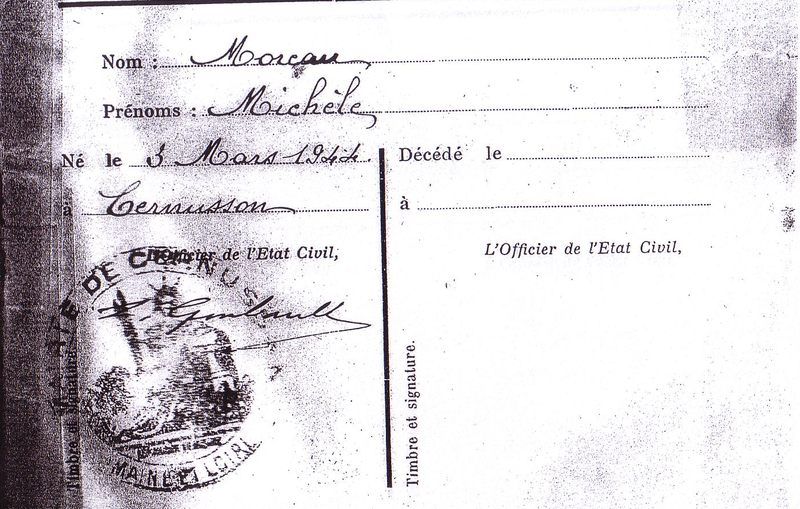 Nom : Moreau
Prénoms : Michèle
Né le 3 Mars 1944
à Cernusson
L'Officier de l'Etat Civil,
Timbre et signature.
MAIRIE DE CERNUSSON
MAINE ET LOIRE
Décédé le
à
L'Officier de l'Etat Civil,
Timbre et signature.